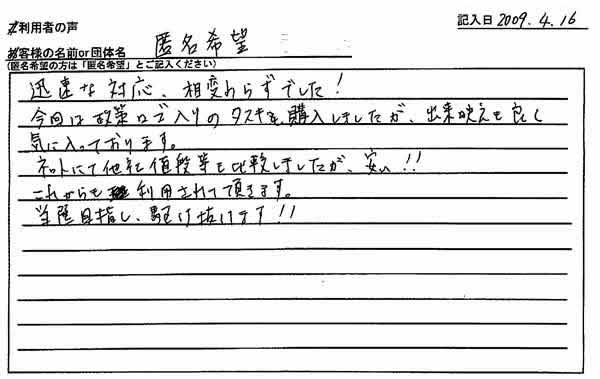 ご利用者の声
記入日 2009.4.16
お客様の名前or団体名 匿名希望
(匿名希望の方は「匿名希望」とご記入ください)
迅速な対応、相変わらずでした!
今回は政策ロゴ入りのタスキを購入しましたが、出来映えも良く
気に入っております。
ネットにて他社値段等も比較しましたが、安い!!
これからも利用されて頂きます。
当選目指し、駆け抜けます!!